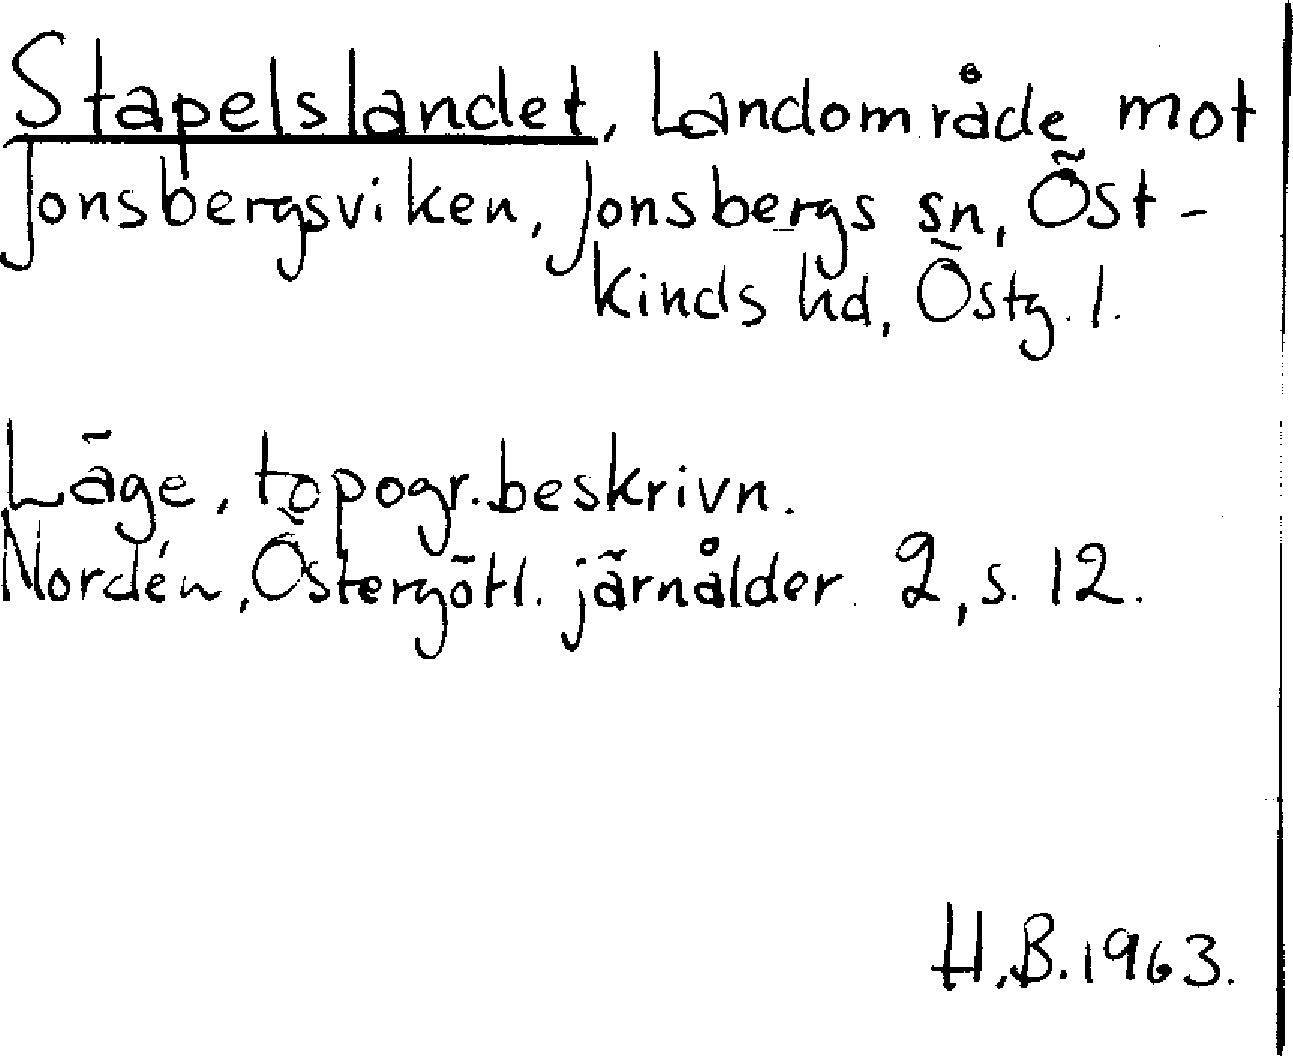 Stapelslandet, Landområde mot
Jonsbergsviken, Jonsbergs sn, Öst-
kinds hd, Östg. l.
Läge, topogr. beskrivn.
Nordén, Östergötl. järnålder 2, s. 12.
H.B. 1963.